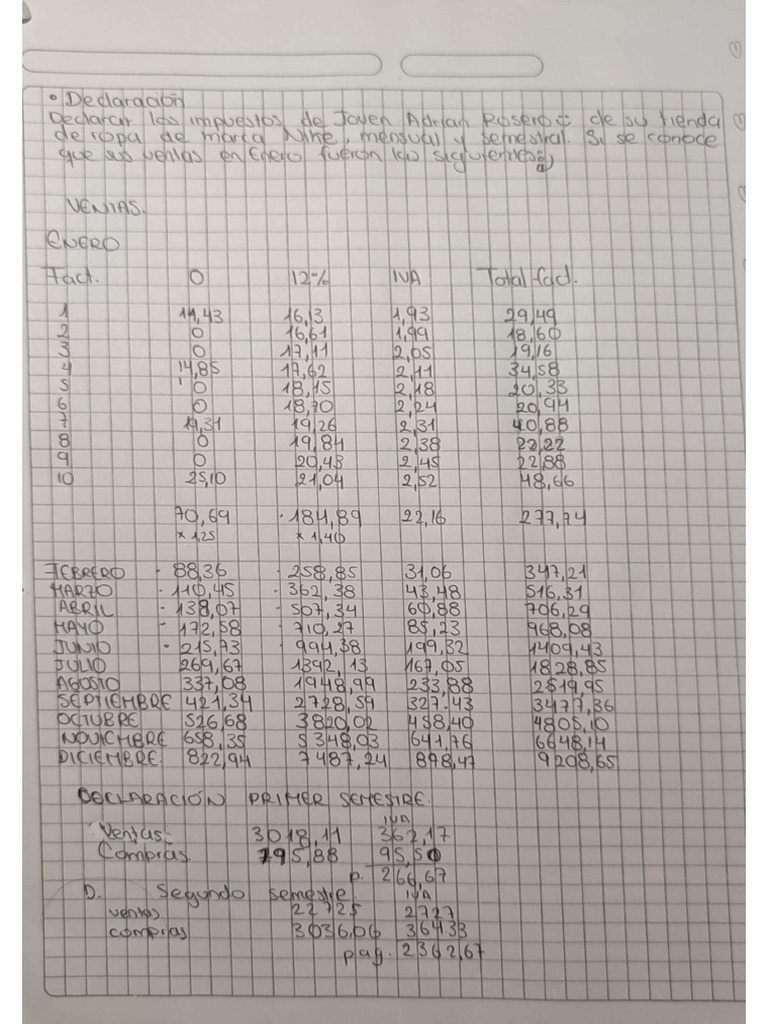 • Declaración
Declarar los impuestos de Joven Adrian Rosero de su tienda
de ropa de marca Nine, mensual y semestral. Si se conoce
que sus ventas en Enero fueron los siguientes:
VENTAS.
ENERO
Fact. 0 12% IVA Total fact.
1 11,43 16,13 1,93 29,49
2 0 16,61 1,99 18,60
3 0 17,11 2,05 19,16
4 14,85 17,62 2,11 34,58
5 0 18,15 2,18 20,33
6 0 18,70 2,24 20,94
7 19,31 19,26 2,31 40,88
8 0 19,84 2,38 22,22
9 0 20,43 2,45 22,88
10 25,10 21,04 2,52 48,66
70,69 184,89 22,16 277,74
* 1,25 * 1,40
FEBRERO 88,36 258,85 31,06 347,21
MARZO 110,45 362,38 43,48 516,31
ABRIL 138,07 507,34 60,88 706,29
MAYO 172,58 710,27 85,23 968,08
JUNIO 215,73 994,38 199,32 1409,43
JULIO 269,67 1392,13 167,05 1828,85
AGOSTO 337,08 1948,99 233,88 2519,95
SEPTIEMBRE 421,34 2728,59 327,43 3477,36
OCTUBRE 526,68 3820,02 458,40 4805,10
NOVIEMBRE 658,35 5348,03 641,76 6648,14
DICIEMBRE 822,94 7487,24 898,47 9208,65
DECLARACIÓN PRIMER SEMESTRE
IVA
Ventas 3018,11 362,17
Compras 795,88 95,50
p. 266,67
D. Segundo semestre IVA
ventas 22725 2727
compras 3036,06 364,33
pag. 2362,67